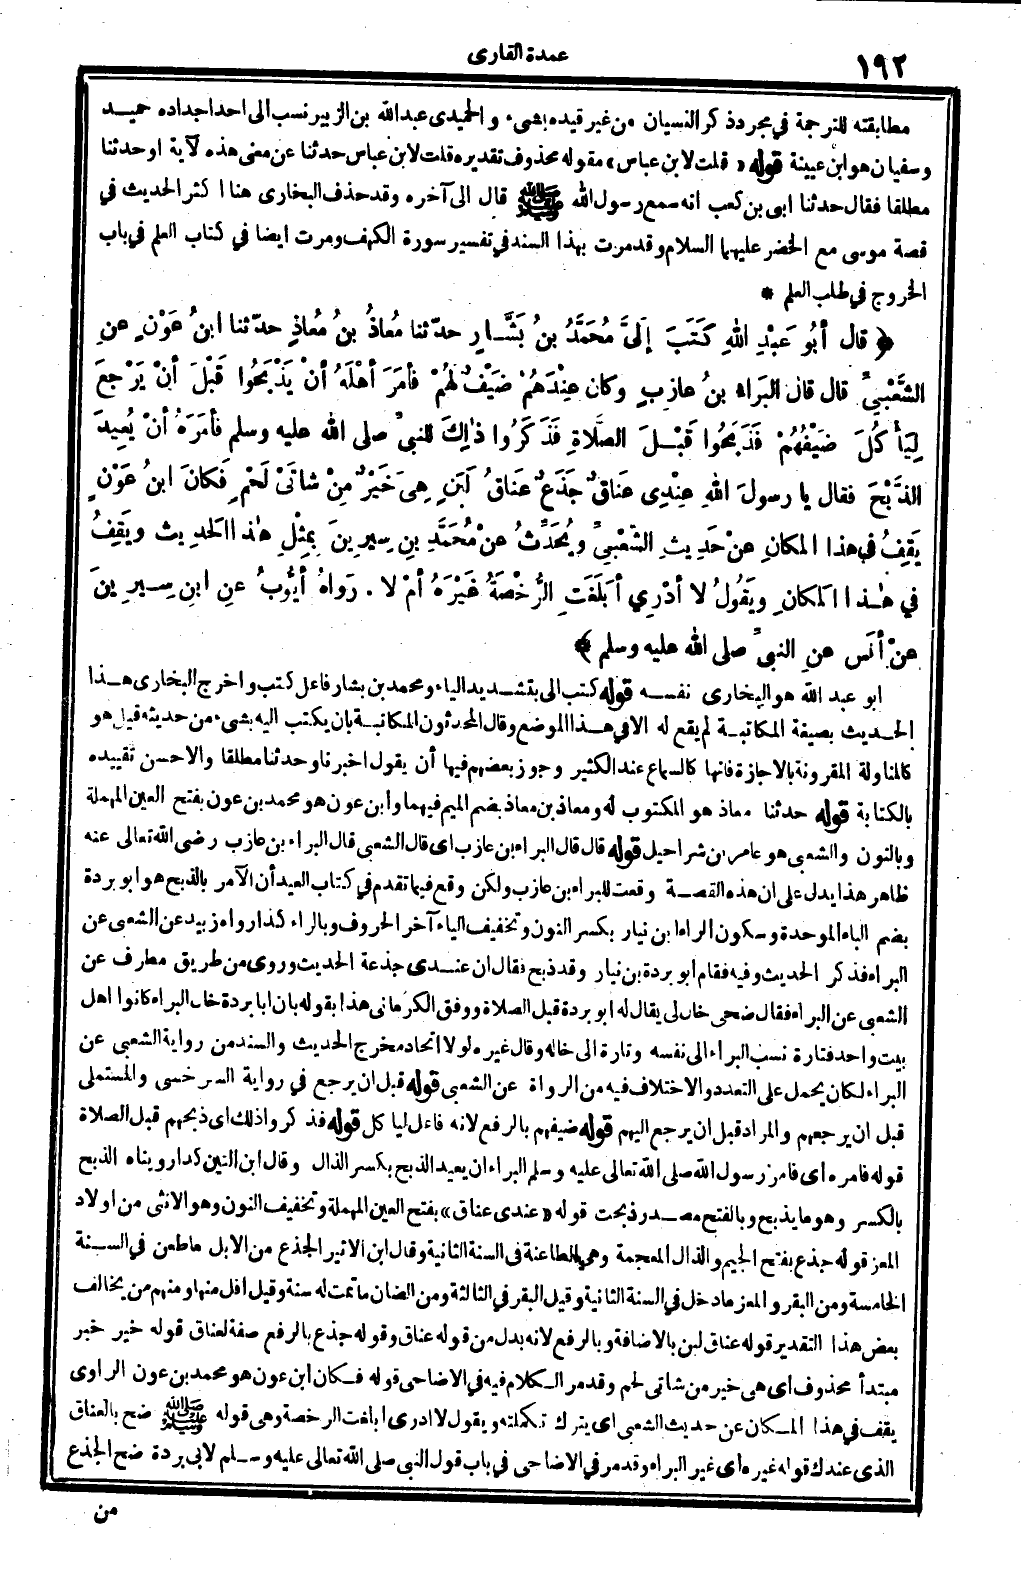 ١٩٢
عمدة القارى
مطابقته للترجمة في مجرد ذكر النسيان من غير قيده بشيء والحميدى عبدالله بن الزبير نسب الى احد اجداده حميد
وسفيان هو ابن عيينة قوله «قلت لابن عباس» مقوله محذوف تقديره قلت لابن عباس حدثنا عن معنى هذه لآية او حدثنا
مطلقا فقال حدثنا ابى بن كعب انه سمع رسول الله ﷺ قال الى آخره وقد حذف البخارى هنا اكثر الحديث في
قصة موسى مع الخضر عليهما السلام وقد مرت بهذا السند في تفسير سورة الكهف ومرت ايضا في كتاب العلم في باب
الخروج في طلب العلم *
﴿ قال أبُو عَبْدِ اللهِ كَتَبَ إلَىَّ مُحَمَّدُ بنُ بَشَّارٍ حدّثنا مُعاذُ بنُ مُعاذٍ حدّثنا ابنُ عَوْنٍ عنِ
الشَّعْبِيِّ قال قال البَراءُ بنُ عازِبٍ وكان عِنْدَهُمْ ضَيْفٌ لهُمْ فأمَرَ أهْلَهُ أنْ يَذْبَحُوا قَبْلَ أنْ يَرْجعَ
لِيَأْكُلَ ضَيْفُهُمْ فَذَبَحُوا قَبْلَ الصَّلاةِ فَذَكَرُوا ذٰلِكَ للنبيِّ صلى الله عليه وسلم فأمَرَهُ أنْ يُعِيدَ
الذَّبْحَ فقال يا رسولَ اللهِ عِنْدِى عناقٌ جَذَعٌ عناقُ لَبَنٍ هِىَ خَيْرٌ مِنْ شاتَىْ لَحْمٍ فَكانَ ابنُ عَوْنٍ
يَقِفُ في هذا المكانِ عنْ حَدِيثِ الشَّعْبِيِّ ويُحَدِّثُ عنْ مُحَمَّدِ بنِ سِيرِينَ بِمِثْلِ هٰذا الحديثِ ويَقِفُ
في هٰذا المكانِ ويَقُولُ لا أدْرِي أبَلَغَتِ الرُّخْصَةُ غَيْرَهُ أمْ لا . رَواهُ أيُّوبُ عنِ ابنِ سِيرِينَ
عنْ أنَسٍ عنِ النبيِّ صلى الله عليه وسلم ﴾
ابو عبد الله هو البخارى نفسه قوله كتب الى بتشديد الياء ومحمد بن بشار فاعل كتب واخرج البخارى هذا
الحديث بصيغة المكاتبة لم يقع له الا في هذا الموضع وقال المحدثون المكاتبة بان يكتب اليه بشيء من حديثه قيل هو
كالمناولة المقرونة بالاجازة فانها كالسماع عند الكثير وجوز بعضهم فيها أن يقول اخبرنا وحدثنا مطلقا والاحسن تقييده
بالكتابة قوله حدثنا معاذ هو المكتوب له ومعاذ بن معاذ بضم الميم فيهما وابن عون هو محمد بن عون بفتح العين المهملة
وبالنون والشعبى هو عامر بن شراحيل قوله قال قال البراء بن عازب اى قال الشعبى قال البراء بن عازب رضى الله تعالى عنه
ظاهر هذا يدل على ان هذه القصة وقعت للبراء بن عازب ولكن وقع فيما تقدم في كتاب العيد أن الآمر بالذبح هو ابو بردة
بضم الباء الموحدة وسكون الراء ابن نيار بكسر النون وتخفيف الياء آخر الحروف وبالراء كذا رواه زبيد عن الشعبى عن
البراء فذكر الحديث وفيه فقام ابو بردة بن نيار وقد ذبح فقال ان عندى جذعة الحديث وروى من طريق مطرف عن
الشعبى عن البراء فقال ضحى خال لى يقال له ابو بردة قبل الصلاة ووفق الكرمانى هذا بقوله بان ابا بردة خال البراء كانوا اهل
بيت واحد فتارة نسب البراء الى نفسه وتارة الى خاله وقال غيره لولا اتحاد مخرج الحديث والسند من رواية الشعبى عن
البراء لكان يحمل على التعدد والاختلاف فيه من الرواة عن الشعبى قوله قبل ان يرجع في رواية السرخسى والمستملى
قبل ان يرجعهم والمراد قبل ان يرجع اليهم قوله ضيفهم بالرفع لانه فاعل ليا كل قوله فذكروا ذلك اى ذبحهم قبل الصلاة
قوله فامره اى فامر رسول الله صلى الله تعالى عليه وسلم البراء ان يعيد الذبح بكسر الذال وقال ابن التين كذا رويناه الذبح
بالكسر وهو ما يذبح وبالفتح مصدر ذبحت قوله «عندى عناق» بفتح العين المهملة وتخفيف النون وهو الانثى من اولاد
المعز قوله جذع بفتح الجيم والذال المعجمة وهي الطاعنة في السنة الثانية وقال ابن الاثير الجذع من الابل ما طعن في السنة
الخامسة ومن البقر والمعز ما دخل في السنة الثانية وقيل البقر في الثالثة ومن الضان ما تمت له سنة وقيل اقل منها ومنهم من يخالف
بعض هذا التقدير قوله عناق لبن بالاضافة وبالرفع لانه بدل من قوله عناق وقوله جذع بالرفع صفة لعناق قوله خير خبر
مبتدأ محذوف اى هى خير من شاتى لحم وقد مر الكلام فيه في الاضاحى قوله فكان ابن عون هو محمد بن عون الراوى
يقف في هذا المكان عن حديث الشعبى اى يترك تكملته ويقول لا ادرى ابلغت الرخصة وهى قوله ﷺ ضح بالعناق
الذى عندك قوله غيره اى غير البراء وقد مر في الاضاحى في باب قول النبى صلى الله تعالى عليه وسلم لابى بردة ضح الجذع
من